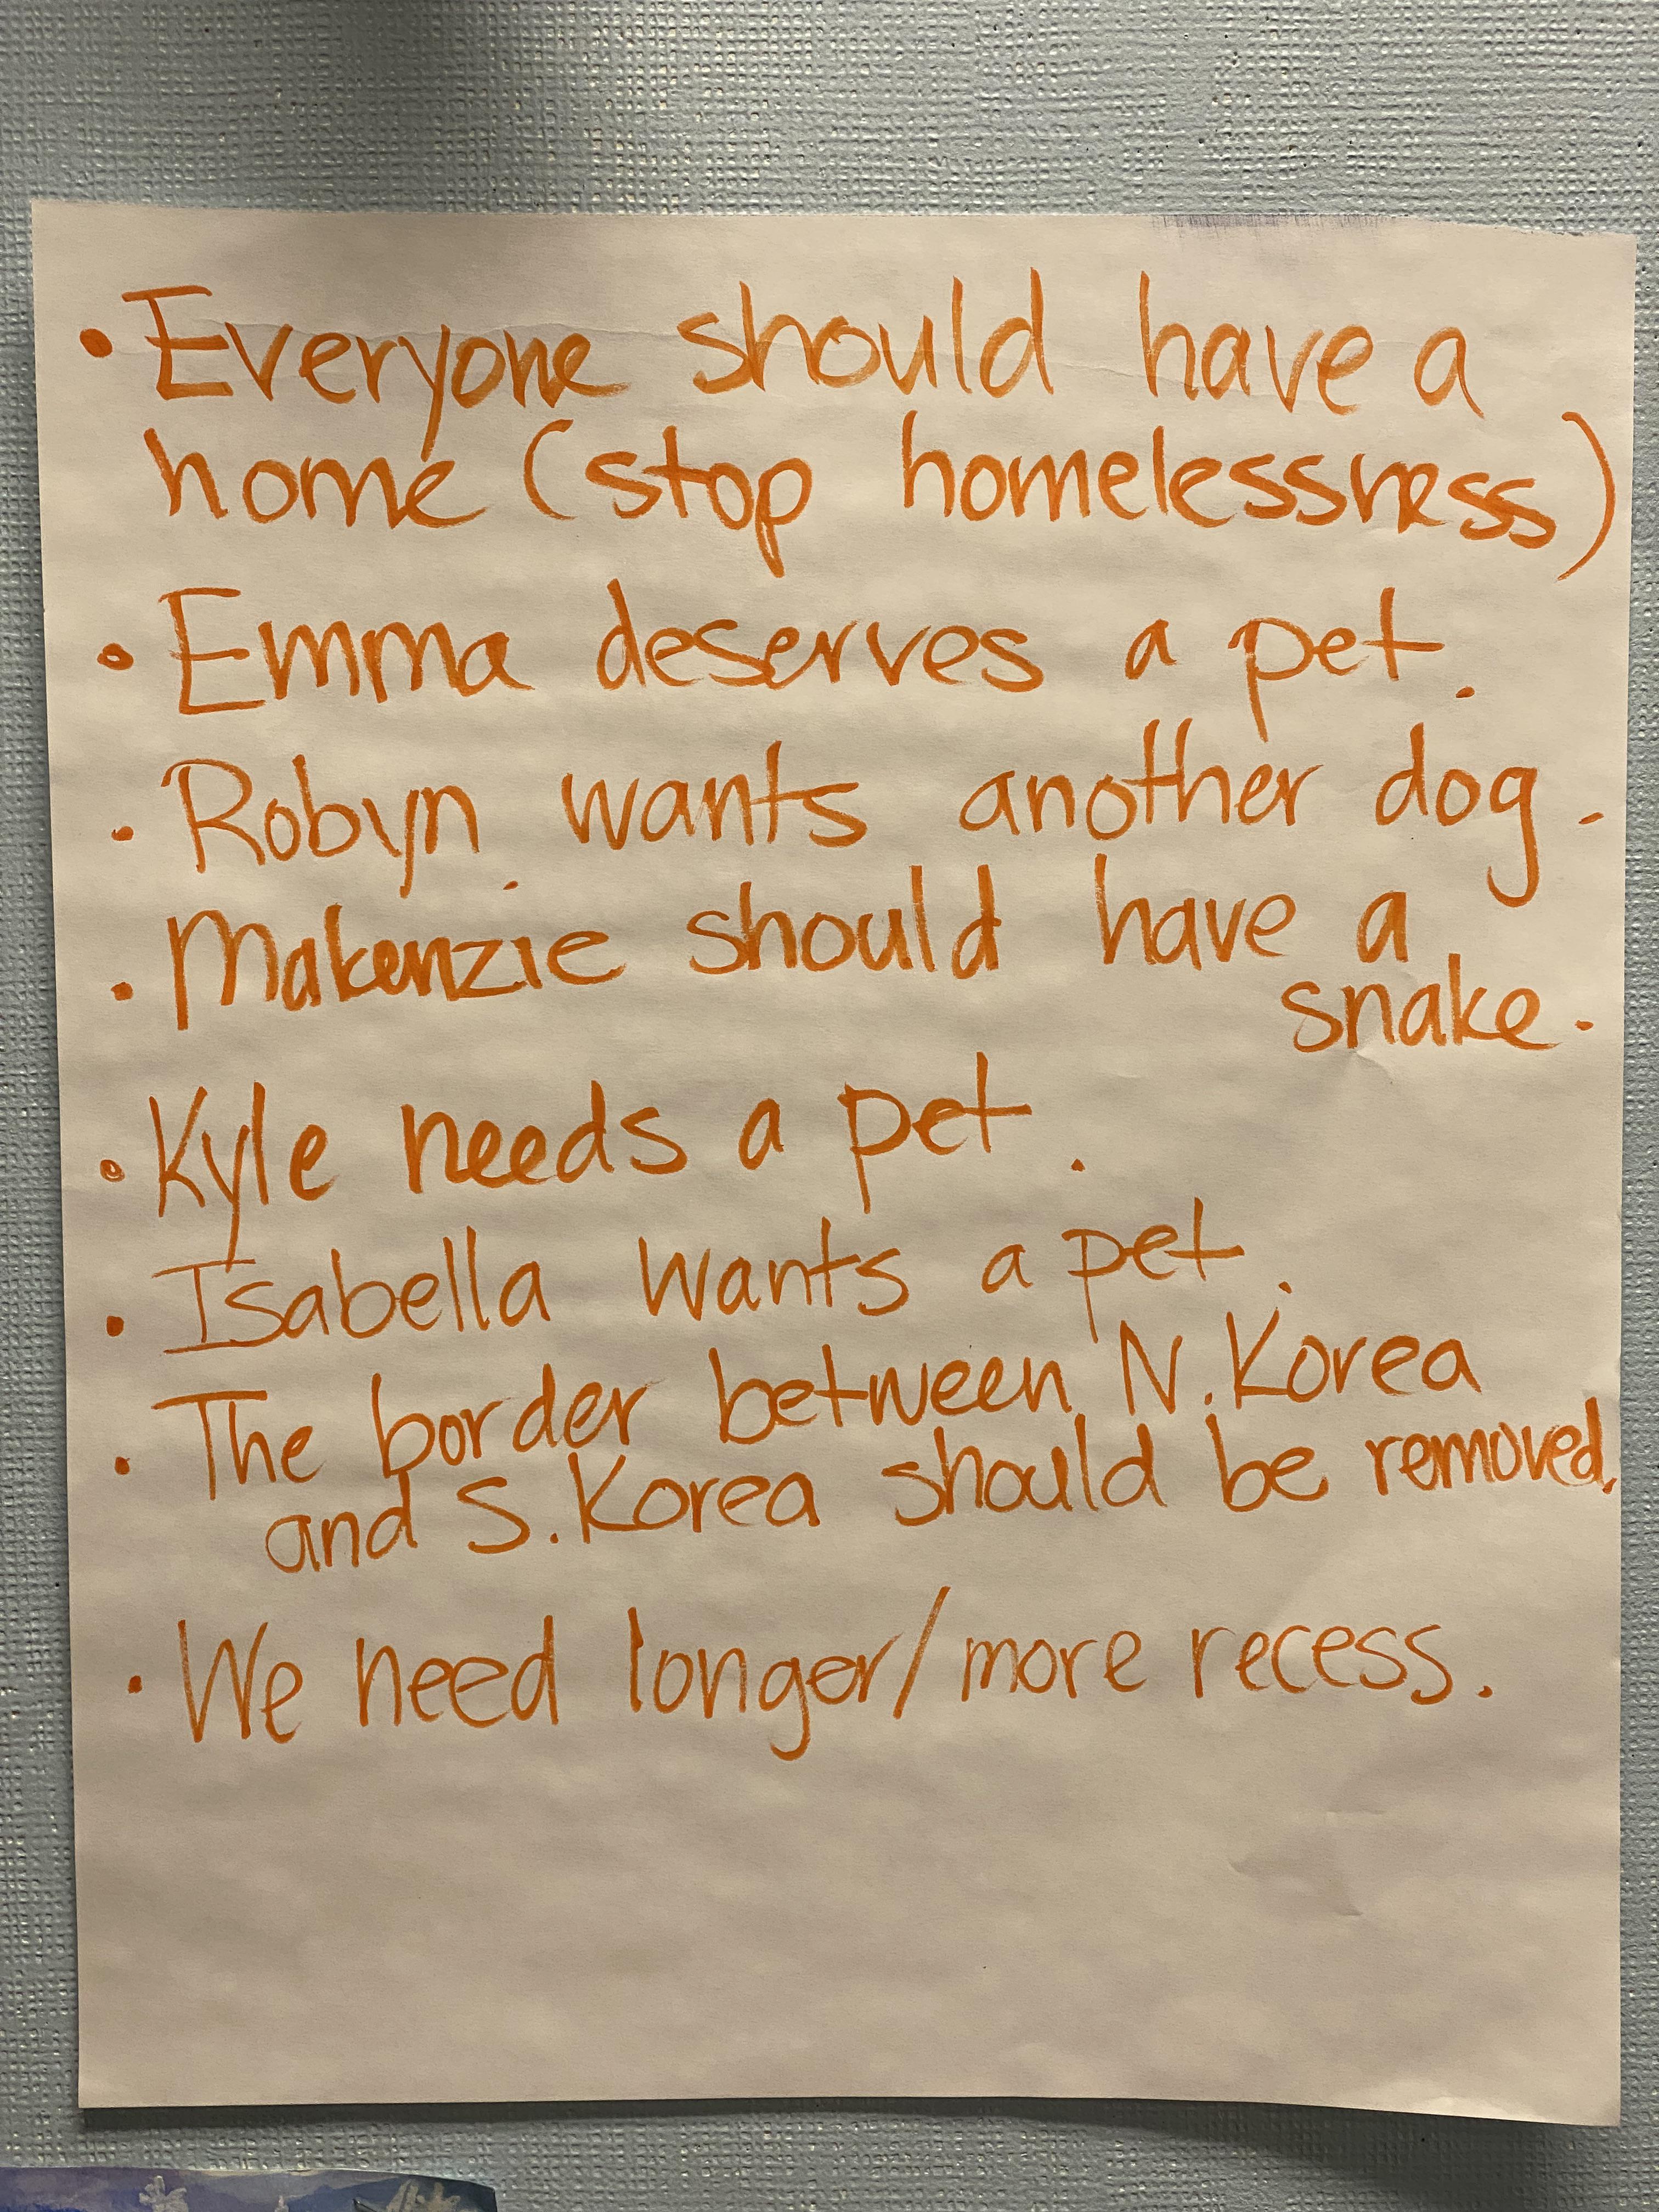 • Everyone should have a
home (stop homelessness)
• Emma deserves a pet.
• Robyn wants another dog.
• Makenzie should have a
snake.
• Kyle needs a pet.
• Isabella wants a pet.
• The border between N. Korea
and S. Korea should be removed.
• We need longer/more recess.